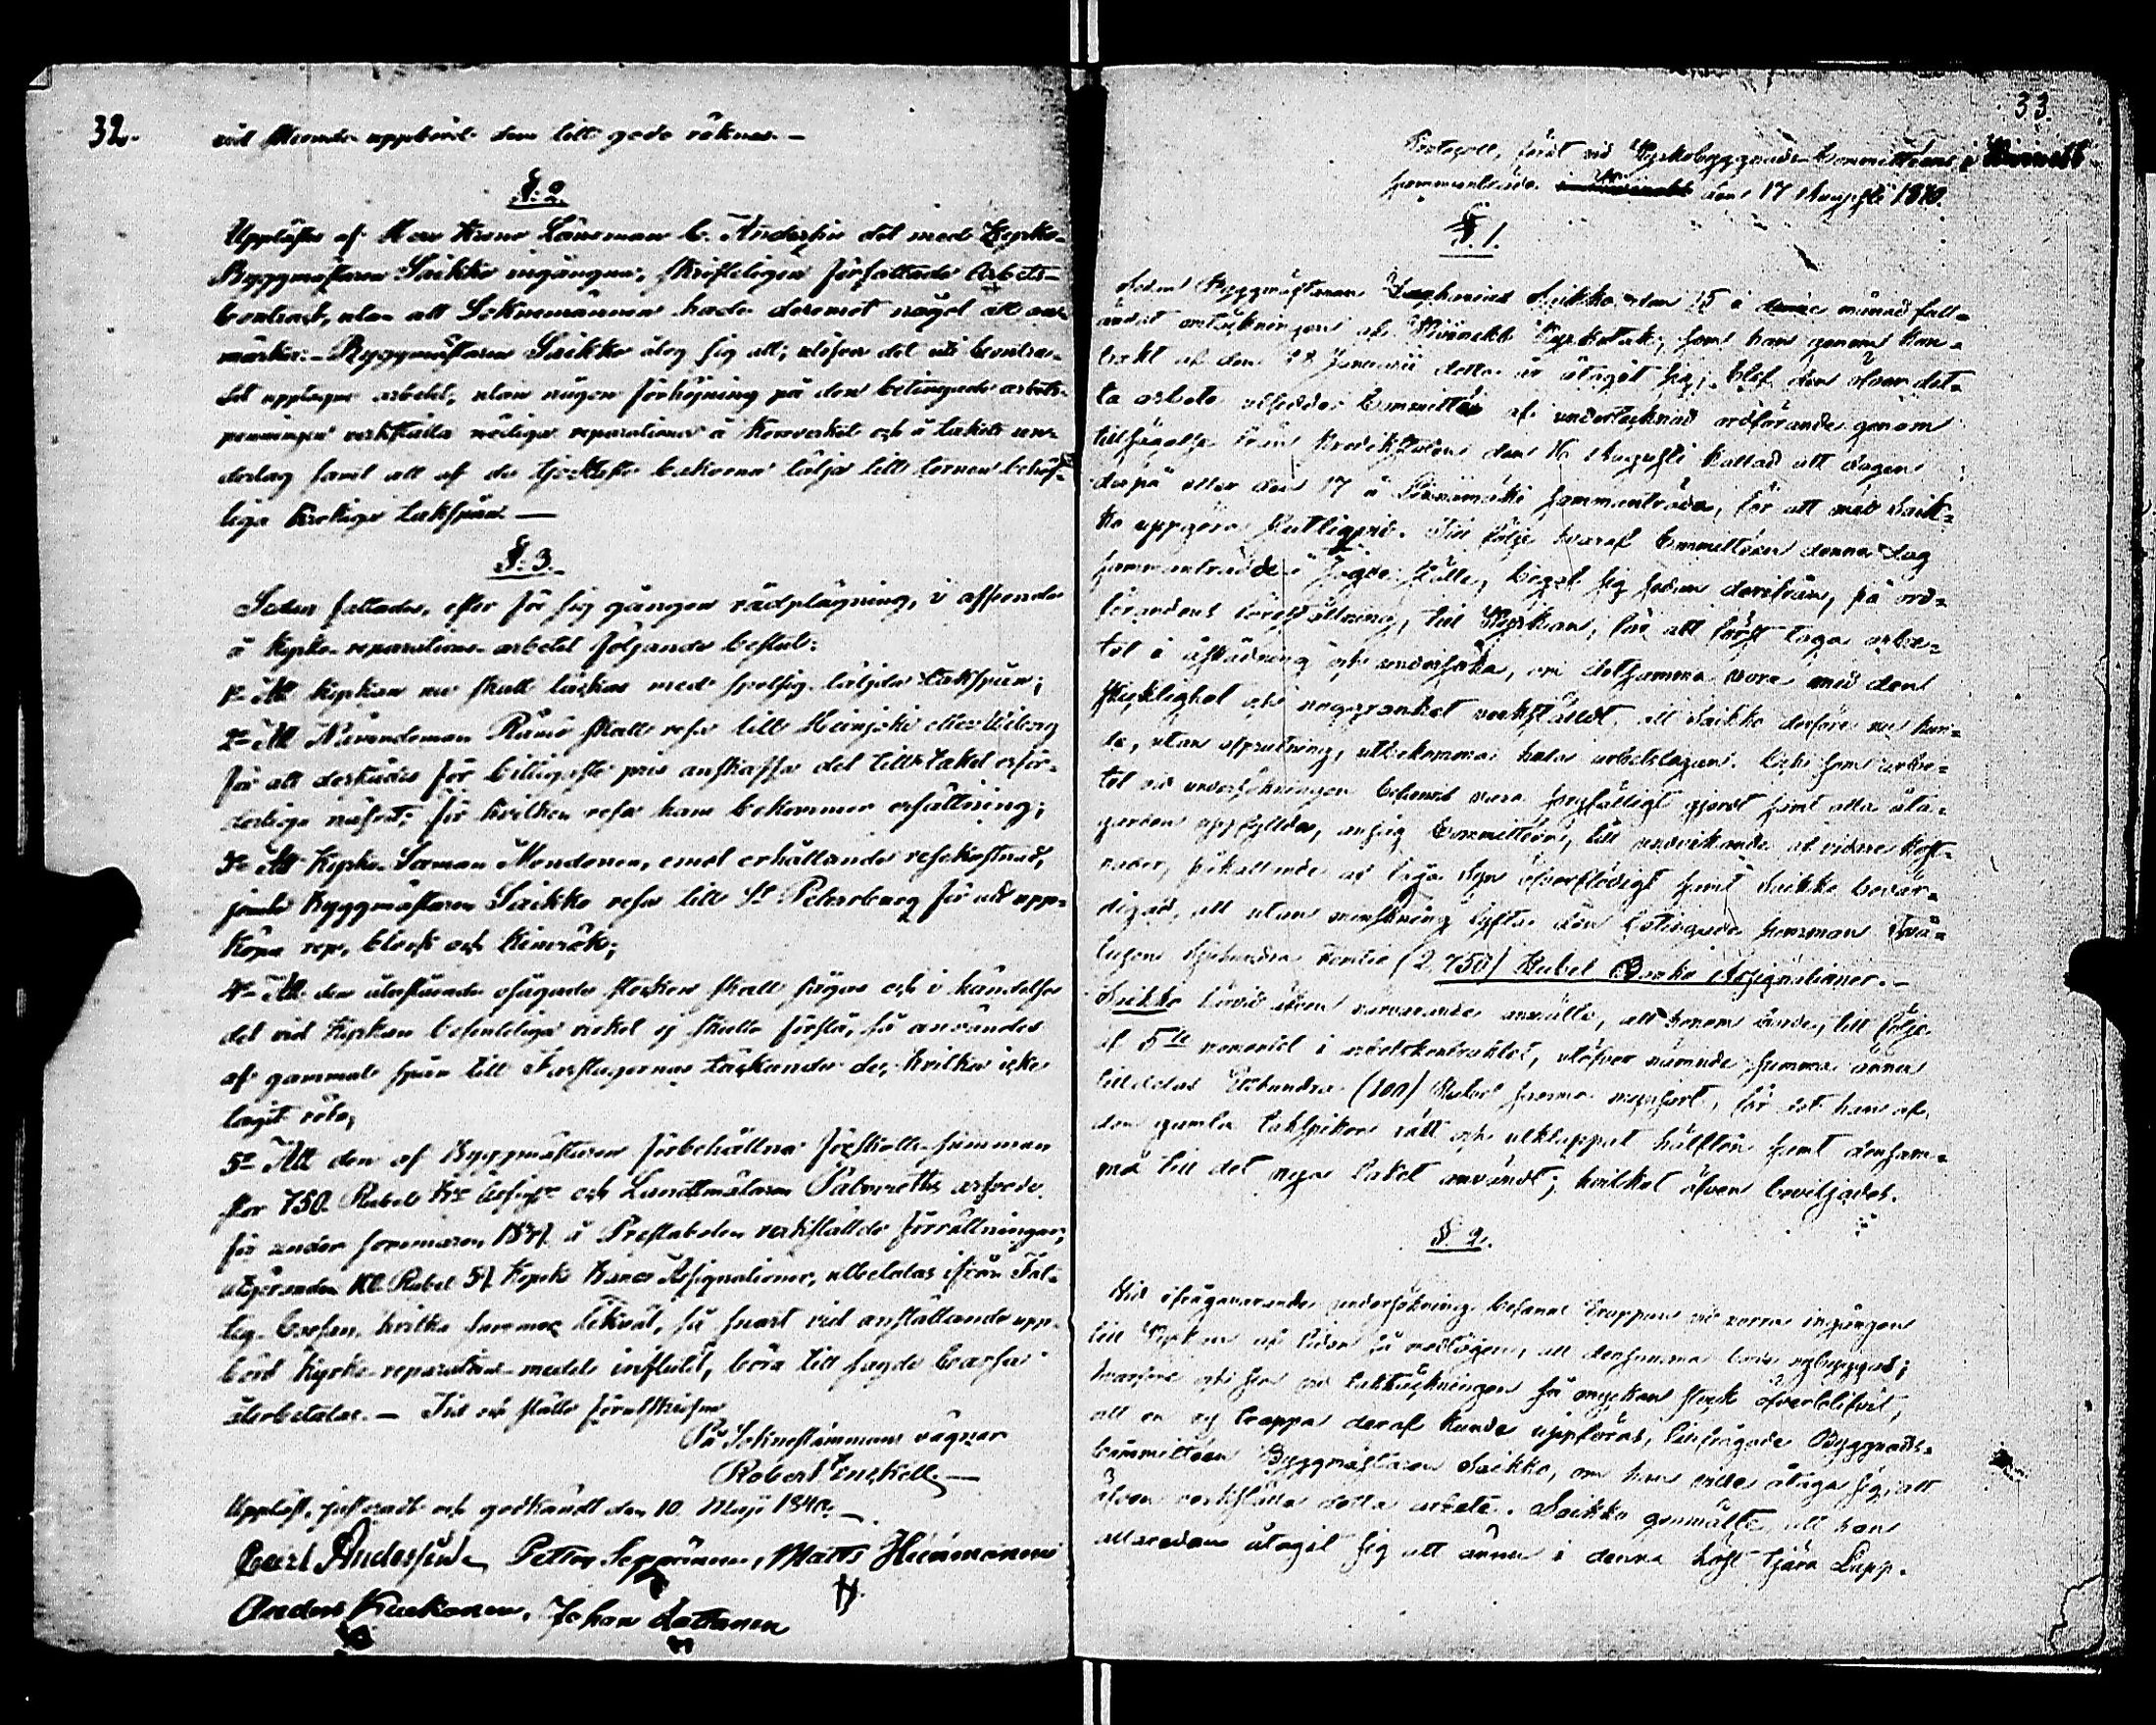 32.
vid  uppbörd dem till godo räknas. —
§. 2.
Upplästes af Herr Krono Länsman C. Andersin det med Kyrko-
Byggmästaren Saikko ingångna, skrifteligen författade Arbets-
Contract, utan att Soknemännen hade deremot något att an-
märka. – Byggmästaren Saikko åtog sig att, utöfver det uti Contrac-
tet upptagne arbetet, utan någon förhöjning på den betingade arbets-
penningen verkställa nödiga reparationer å Korsverket och å takets un-
derlag samt att af de tjockaste täljа till tornen behöf-
liga takspån. —
§. 3.
Sedan fattades, efter för sig gången rådplägning, i afseende
å Kyrko-reparations-arbetet följande beslut:
1o Att Kyrkan nu skall täckas med spetsig täljda takspån;
2o Att Nämndeman Rämö skall resa till Heinjoki eller Wiborg
för att derstädes för billigaste pris anskaffa det till taket erfor-
derliga näfret; för hvilken resa han bekommer ersättning;
3o Att Kyrko-Sexman Mondonen, emot erhållande resekostnad,
jemte Byggmästaren Saikko resa till St Petersburg för att upp-
köpa rep, block och Kimrök;
4o Att den återstående osågade stocken skall sågas och i händelse
det vid Kyrkan befintliga virket ej skulle förslå, så användes
af gammalt spån till täckande de, hvilka icke
tagit röta;
5o Att den af Byggmästaren förbehållna förskotts-summan
stor 750 Rubel och Landtmätaren arfvode
för under sommaren 1839 å Prestabolen verkställde förrättningar,
utgörande Rubel 57 Kopek Banco Assignationer, utbetalas ifrån Fat-
tig-Cassan, hvilka summor likväl, så snart vid anställande upp-
börd Kyrko-reparations-medel influtit, böra till sagde Cassa
återbetalas. — Tid och ställe förutskrifne
På Sokneståmmans vägnar
Robert Enckell. —
Uppläst, justeradt och godkändt den 10 Maji 1840. —
Carl Andersin, Petter Seppänen, Matts Heinonen
Anders Kuckonen, Johan Lattanen
33.
Protocoll, fördt vid Kyrkobyggnads-Committéens i Kivinebb
sammanträde den 17 Augusti 1840.
§. 1.
Sedan Byggmästaren Zacharias Saikko den 15 i denne månad full-
ändat omtäckningen af Kivinebb Kyrkotak, som han genom kon-
trakt af den 28 Januarii detta år åtagit sig, blef den öfver det-
ta arbete utsedda Committée af undertecknad ordförande genom
tillsägelse från Predikstolen den 16 Augusti kallad att dagen
derpå eller den 17 å sammanträda, för att med Saik-
ko uppgöra slutliqvid. Till följe hvaraf Committéen denna dag
sammanträdde å sagde ställe, begaf sig sedan derifrån, på ord-
förandens föreställning, till Kyrkan, för att först taga arbe-
tet i åskådning och undersöka, om detsamma vore med den
skicklighet och noggranhet verkställdt, att Saikko derföre nu kun-
de, utan afprutning, utbekomma hela arbetslegan. Och som arbe-
tet vid undersökningen befanns vara sorgfälligt gjordt samt alla åta-
ganden uppfyllda, ansåg Committéen, till undvikande af vidare kost-
nader, påkallande af laga Syn öfverflödigt samt Saikko berät-
tigad, att utan minskning lyfta den betingade summan Två-
tusen Sjuhundra Femtio (2,750) Rubel Banko Assignationer. —
Saikko härvid äfven närvarande anmälte, att honom borde, till följe
af 5te momentet i arbetskontraktet, utöfver nämnde summa ännu
tilldelas Etthundra (100) Rubel samma myntsort, för det han af
den gamla takspiken rätt och utklappat hälften samt densam-
ma till det nya taket användt; hvilket äfven beviljades.
§. 2.
Vid ifrågavarande undersökning befanns trappan vid norra ingången
till Kyrkan af tiden så medtagen, att densamma borde ombyggas;
hvarföre och som vid taktäckningen så mycken stock öfverblifvit,
att en ny trappa deraf kunde uppföras, tillfrågade Byggnads-
Committéen Byggmästaren Saikko, om han ville åtaga sig, att
äfven verkställa detta arbete. Saikko genmälte, att han
allaredan åtagit sig att ännu i denna höst tjära Lapp-